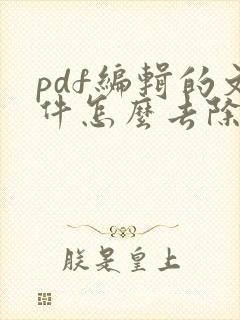 pdf编辑的文
件怎麼去除
朕是皇上